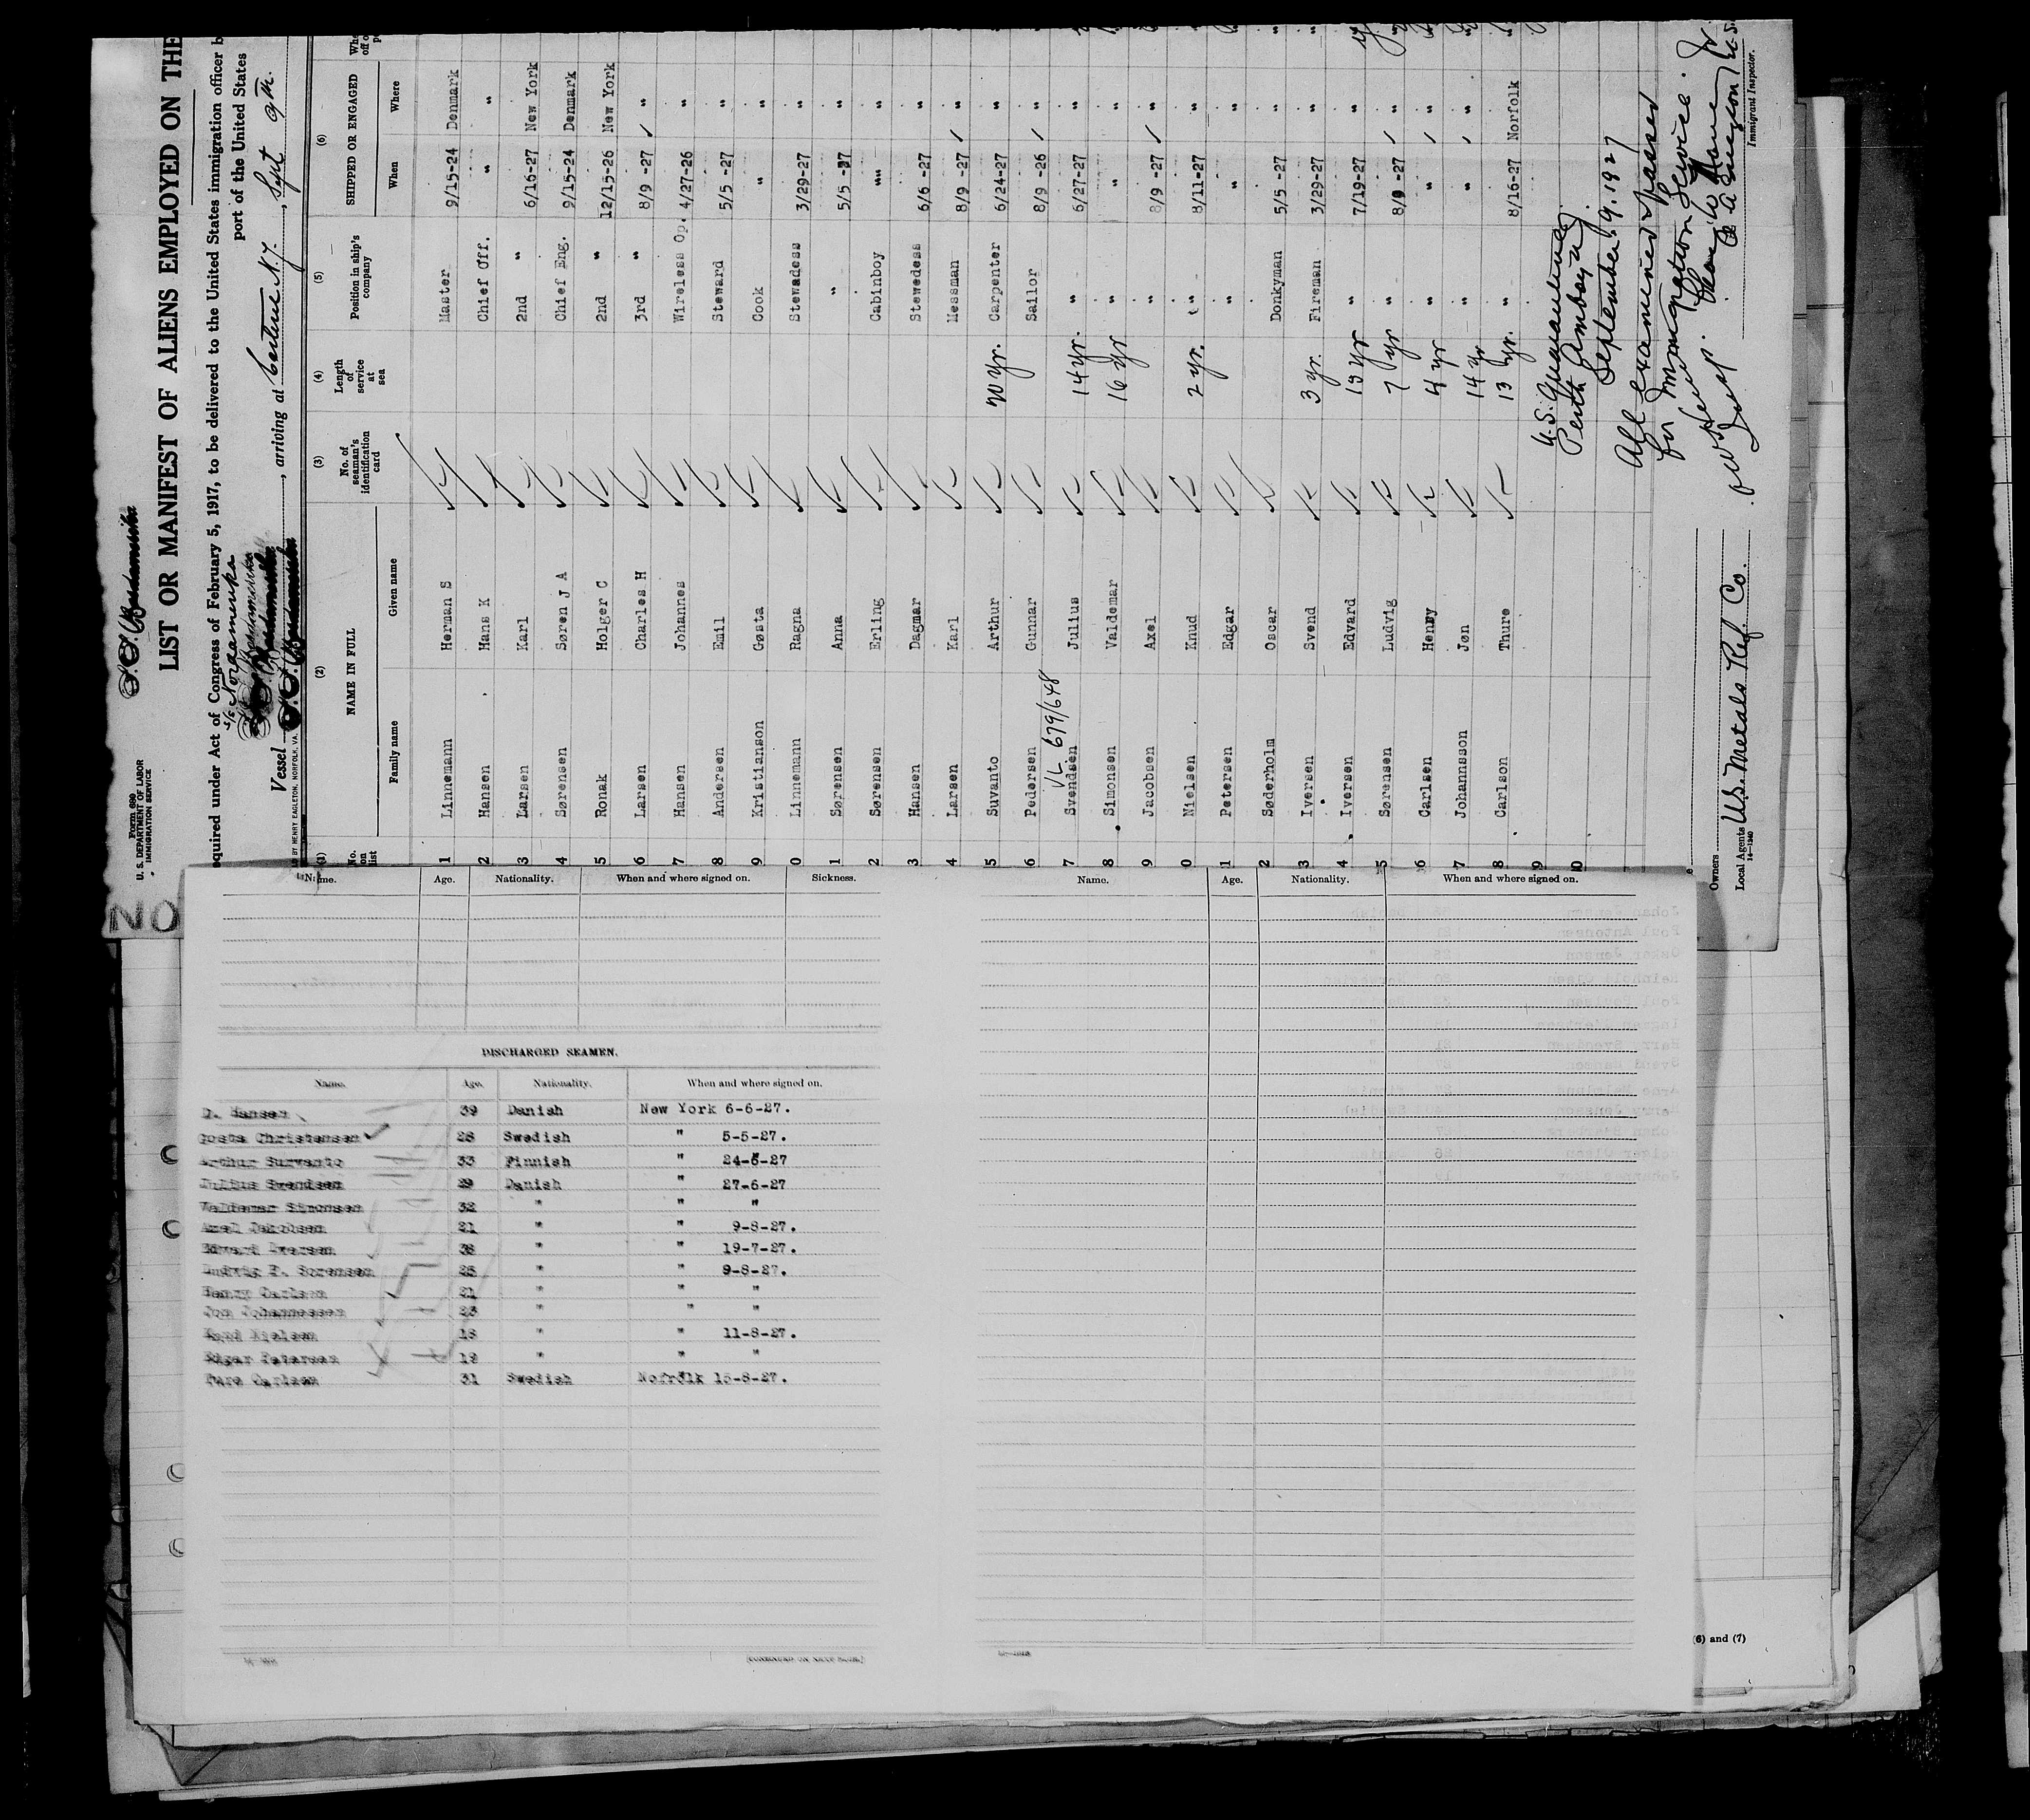 Form 680
U. S. DEPARTMENT OF LABOR
IMMIGRATION SERVICE
LIST OR MANIFEST OF ALIENS EMPLOYED ON THE
equired under Act of Congress of February 5, 1917, to be delivered to the United States immigration officer b
port of the United States
S/S Nordamerika
Vessel , arriving at Carteret N.J. , Sept 9th.
LD BY HENRY EAGLETON, NORFOLK, VA.
(1) (2) (3) (4) (5) (6)
No. on list NAME IN FULL No. of seaman's identification card Length of service at sea Position in ship's company SHIPPED OR ENGAGED
Family name Given name When Where
1 Linnemann Herman S Master 9/15-24 Denmark
2 Hansen Hans K Chief Off. " "
3 Larsen Karl 2nd " 6/16-27 New York
4 Sørensen Søren J A Chief Eng. 9/15-24 Denmark
5 Ronak Holger C 2nd " 12/15-26 New York
6 Larsen Charles H 3rd " 8/9 -27 "
7 Hansen Johannes Wireless Op. 4/27-26 "
8 Andersen Emil Steward 5/5 -27 "
9 Kristianson Gøsta Cook " "
0 Linnemann Ragna Stewadess 3/29-27 "
1 Sørensen Anna " 5/5 -27 "
2 Sørensen Erling Cabinboy "" "
3 Hansen Dagmar Stewedess 6/6 -27 "
4 Larsen Karl Messman 8/9 -27 "
5 Suvanto Arthur 20 yr. Carpenter 6/24-27 "
6 Pedersen Gunnar Sailor 8/9 -26 "
VL 679/648
7 Svendsen Julius 14 yr. " 6/27-27 "
8 Simonsen Valdemar 16 yr " " "
9 Jacobsen Axel " 8/9 -27 "
0 Nielsen Knud 2 yr. " 8/11-27 "
1 Petersen Edgar " " "
2 Søderholm Oscar Donkyman 5/5 -27 "
3 Iversen Svend 3 yr. Fireman 3/29-27 "
4 Iversen Edvard 19 yr " 7/19-27 "
5 Sørensen Ludvig 7 yr " 8/9 -27 "
6 Carlsen Henry 4 yr " " "
7 Johannsson Jøn 14 yr " " "
8 Carlson Thure 13 yr. " 8/16-27 Norfolk
9
0
U.S. Quarantine
Perth Amboy N.J.
September 9. 1927
All examined & passed
for Immigration Service.
Immigrant Inspector.
Owners
Local Agents U.S. Metals Ref. Co.
14—1240
NO
Name. Age. Nationality. When and where signed on. Sickness.
DISCHARGED SEAMEN.
Name. Age. Nationality. When and where signed on.
D. Hansen 39 Danish New York 6-6-27.
Gosta Christensen 28 Swedish " 5-5-27.
Arthur Survanto 33 Finnish " 24-6-27
Julius Svendsen 29 Danish " 27-6-27
Valdemar Simonsen 32 " " "
Axel Jakobsen 21 " " 9-8-27.
Edvard Iversen 38 " " 19-7-27.
Ludvig P. Sorensen 25 " " 9-8-27.
Henry Carlsen 21 " " "
Jon Johannessen 23 " " "
Knud Nielsen 18 " " 11-8-27.
Edgar Petersen 19 " " "
Ture Carlsen 31 Swedish Nofrolk 15-8-27.
[CONTINUED ON NEXT PAGE.]
Name. Age. Nationality. When and where signed on.
(6) and (7)